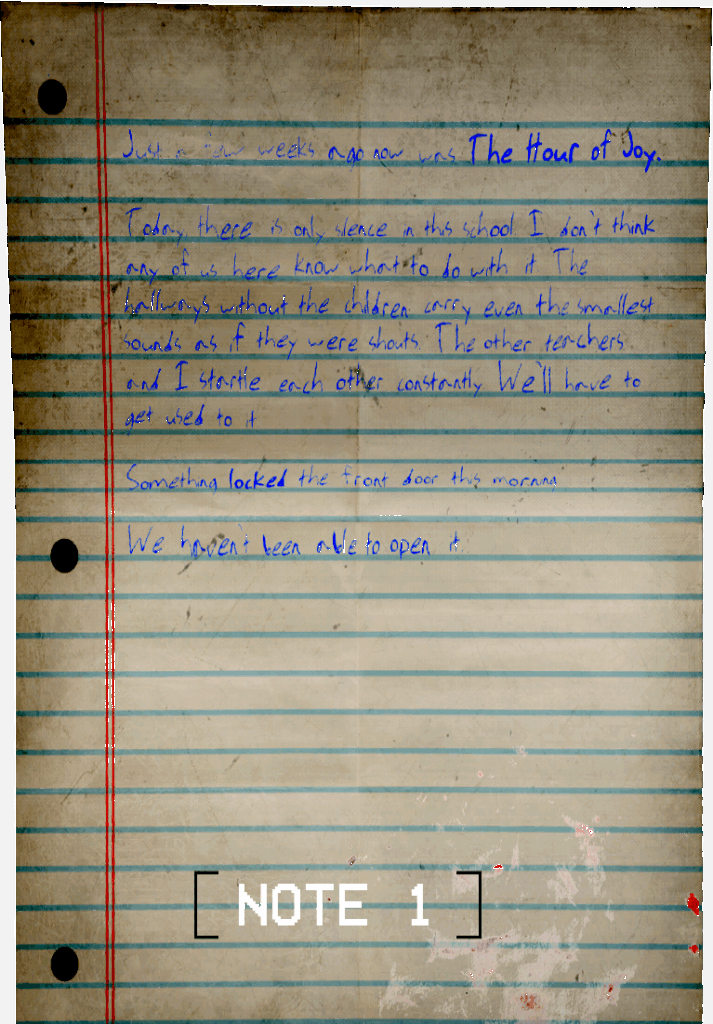 Just a few weeks ago now was The Hour of Joy.
Today, there is only silence in this school I don't think
any of us here know what to do with it The
hallways without the children carry even the smallest
sounds as if they were shouts. The other teachers
and I startle each other constantly We'll have to
get used to it
Something locked the front door this morning
We haven't been able to open it.
[ NOTE 1 ]